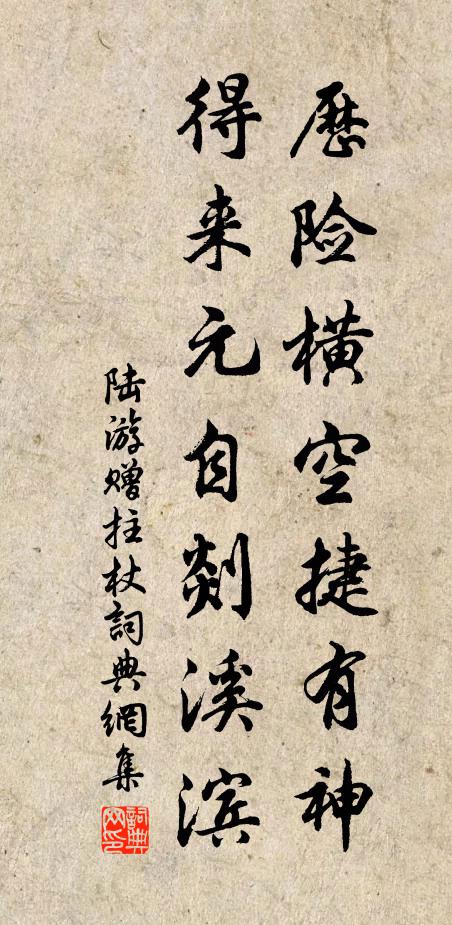 歷险横空捷有神
得来元自剡溪滨
陆游赠拄杖詞典網集
詞典网印